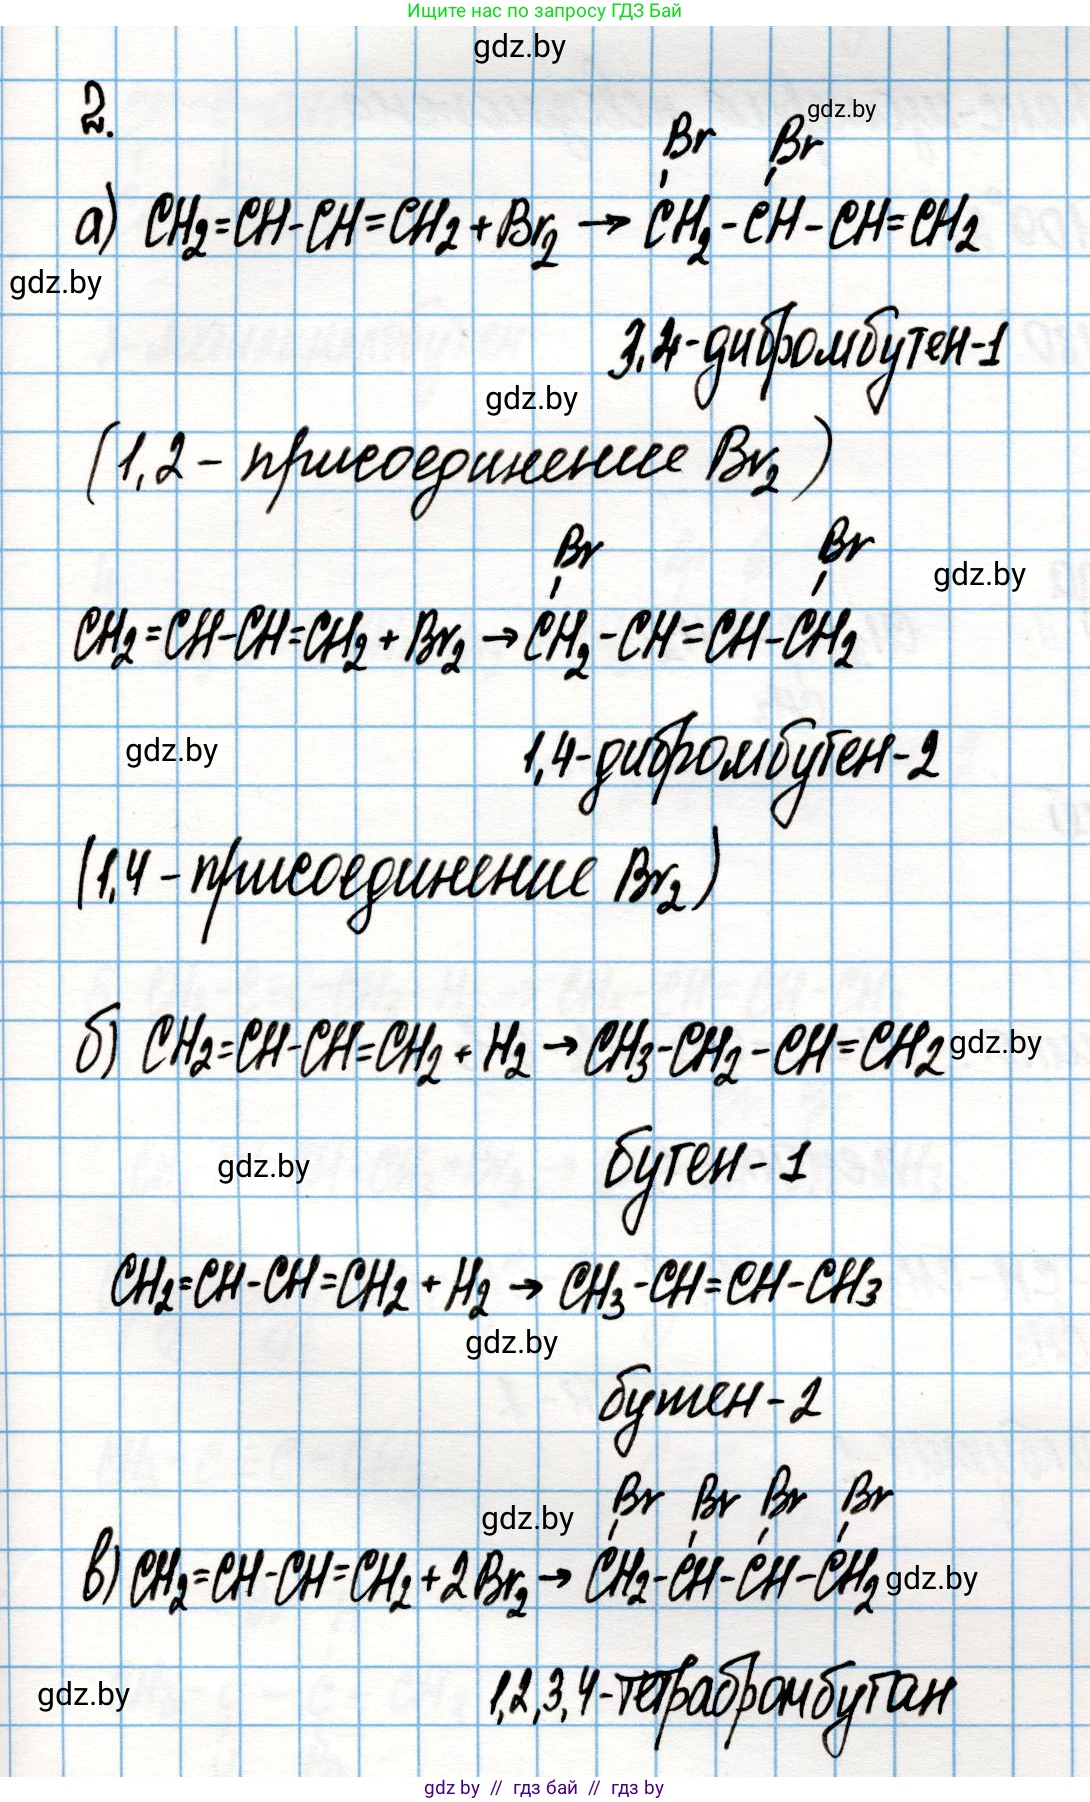 Ищите нас по запросу ГДЗ Бай
gdz.by
2.
gdz.by
Br Br
а) CH₂=CH-CH=CH₂+Br₂ → CH₂-CH-CH=CH₂
gdz.by
3,4-дибромбутен-1
gdz.by
(1,2-присоединение Br₂)
Br Br
gdz.by
CH₂=CH-CH=CH₂+Br₂ → CH₂-CH=CH-CH₂
gdz.by
1,4-дибромбутен-2
(1,4-присоединение Br₂)
б) CH₂=CH-CH=CH₂+H₂ → CH₃-CH₂-CH=CH₂
gdz.by
gdz.by
бутен-1
CH₂=CH-CH=CH₂+H₂ → CH₃-CH=CH-CH₃
gdz.by
бутен-2
Br Br Br Br
gdz.by
в) CH₂=CH-CH=CH₂+2Br₂ → CH₂-CH-CH-CH₂
gdz.by
gdz.by
1,2,3,4-тетрабромбутан
gdz.by // гдз бай // гдз by